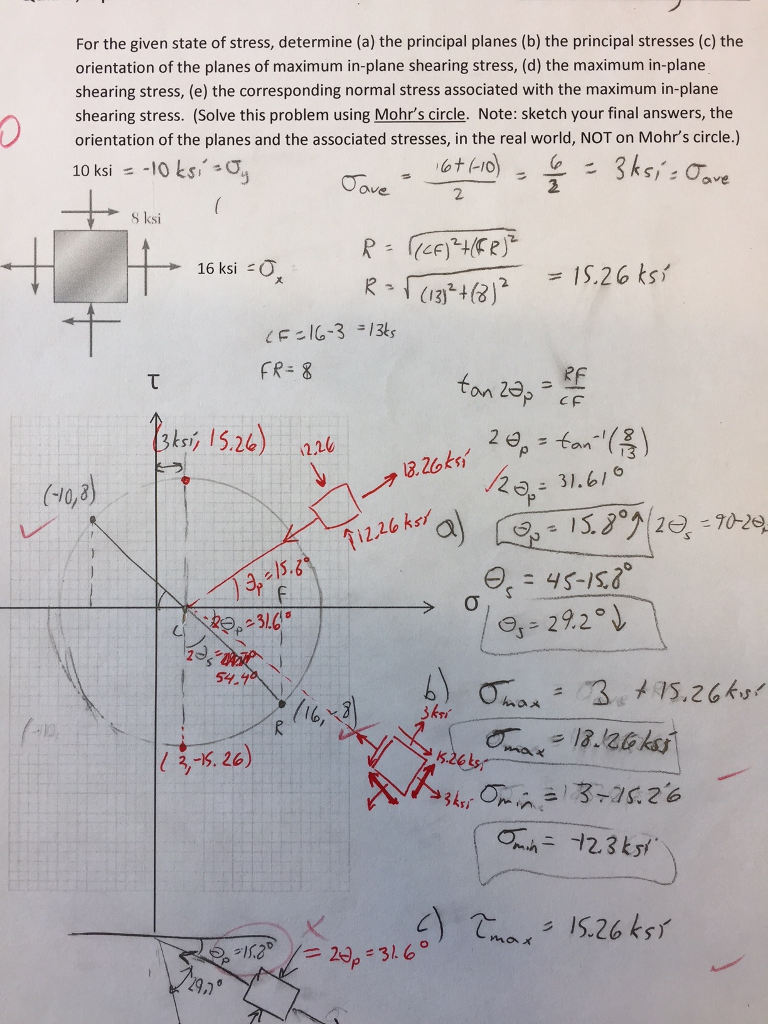 For the given state of stress, determine (a) the principal planes (b) the principal stresses (c) the
orientation of the planes of maximum in-plane shearing stress, (d) the maximum in-plane
shearing stress, (e) the corresponding normal stress associated with the maximum in-plane
shearing stress. (Solve this problem using Mohr's circle. Note: sketch your final answers, the
orientation of the planes and the associated stresses, in the real world, NOT on Mohr's circle.)
10 ksi = -10 ksi = σy
σave = 16+(-10) / 2 = 6/2 = 3ksi = σave
8 ksi
16 ksi = σx
R = √(CF)²+(FR)²
R = √(13)²+(8)² = 15.26 ksi
CF = 16-3 = 13ks
FR = 8
τ
tan 2θp = RF/CF
(3ksi, 15.26)
12.26
18.26ksi
2θp = tan⁻¹(8/13)
(-10,8)
2θp = 31.61°
↑12.26 ksi
a) θp = 15.8°↑ 2θs = 90-2θp
θp = 15.8°
F
θs = 45-15.8°
σ
C
2θp = 31.6°
θs = 29.2°↓
2θs =
54.4°
(16, -8)
R
b) σmax = 3 + 15.26ksi
3ksi
σmax = 18.26ksi
(3,-15.26)
15.26ksi
3ksi
σmin = 3-15.26
σmin = -12.3ksi
c) τmax = 15.26ksi
θp = 15.8° = 2θp = 31.6°
29.2°